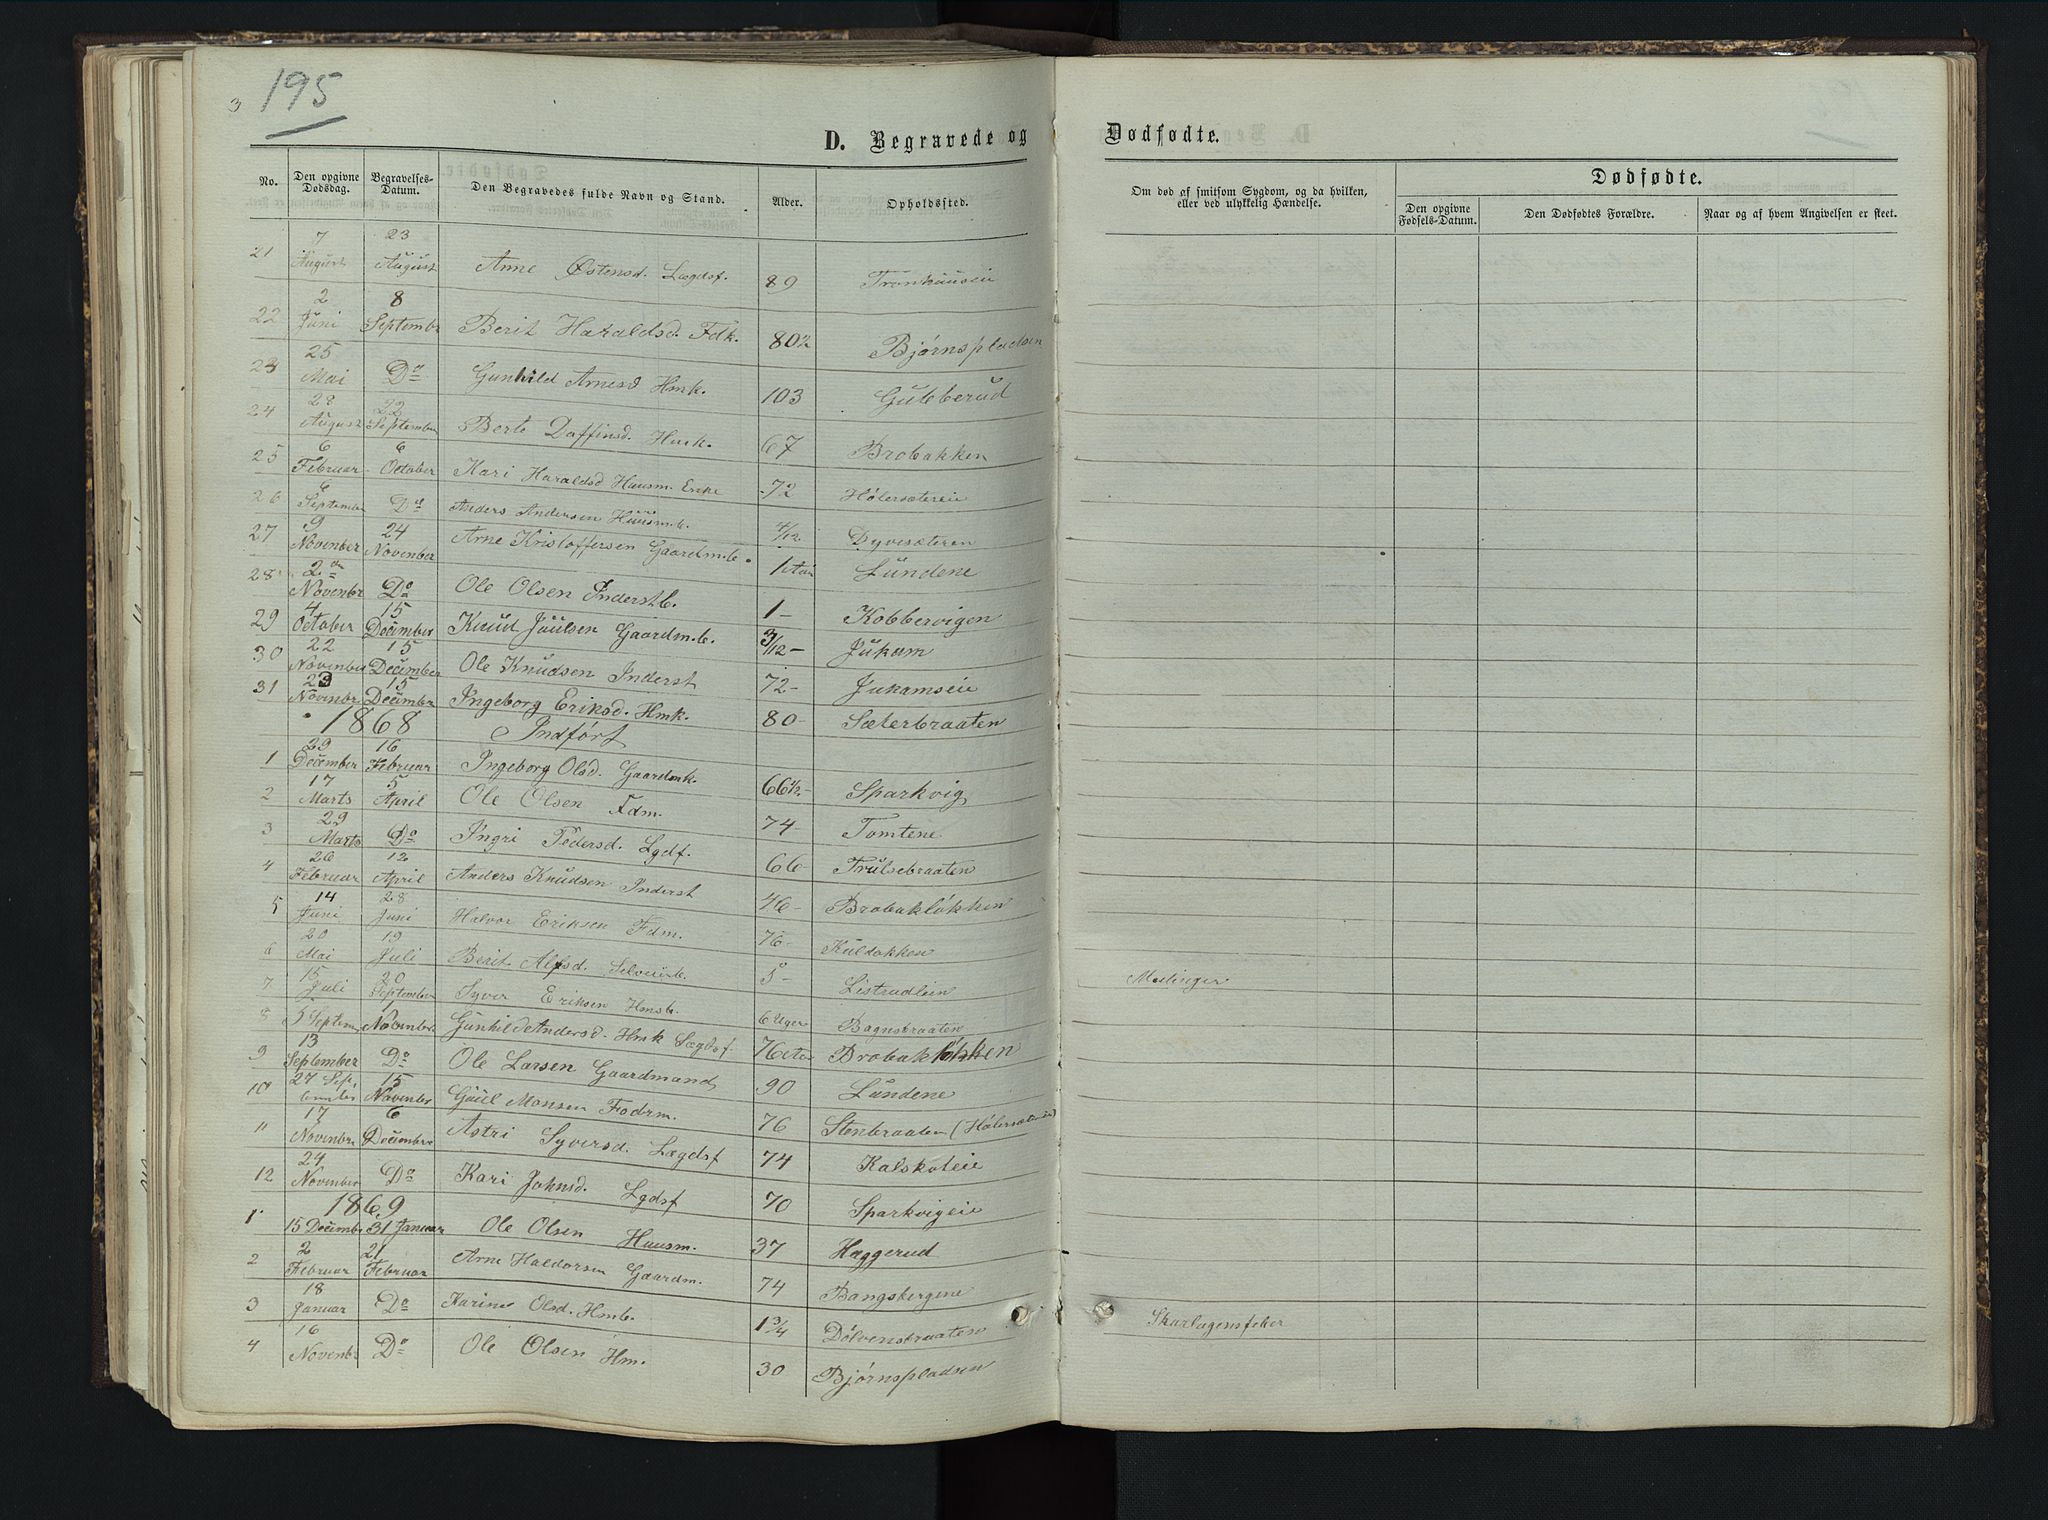 3 195
D. Begravede og Dødfødte.
No. Den opgivne Dødsdag. Begravelses-Datum. Den Begravedes fulde Navn og Stand. Alder. Opholdsted. Om død af smitsom Sygdom, og da hvilken, eller ved ulykkelig Hændelse. Dødfødte. Den opgivne Fødsels-Datum. Den Dødfødtes Forældre. Naar og af hvem Angivelsen er skeet.
21 7 August 23 August Anne Østensd. Lægdsf. 89 Tronhuuseie
22 2 Juni 8 Septembr Berit Haraldsd. Fdk. 80½ Bjørnspladsen
23 25 Mai Do Gunhild Arnesd Hmk. 103 Gubberud
24 28 August 22 September Berte Daffinsd. Hmk. 67 Brobakken
25 6 Februar 6 October Kari Haraldsd Huusm. Enke 72 Hølersætereie
26 6 September Do Anders Andersen Huusm.b. 4/12 Dyvesæteren
27 9 November 24 November Arne Kristoffersen Gaardm.b. 1 Lundene
28 2 Novembr Do Ole Olsen Inderstb. 1 - Kobbervigen
29 4 October 15 December Knud Juulsen Gaardm.b. 3/12 - Jukam
30 22 November 15 December Ole Knudsen Inderst 72 - Jukamseie
31 23 Novembr 15 Decembr Ingeborg Eriksd. Hmk. 80 - Sæterbraaten
1868 Indført
1 29 December 16 Februar Ingeborg Olsd. Gaardmk. 66½ - Sparkvig
2 17 Marts 5 April Ole Olsen Fdm. 74 - Tomtene
3 29 Marts Do Ingri Pedersd. Lgdf. 66 - Trulsebraaten
4 26 Februar 12 April Anders Knudsen Inderst 46 - Brobakløkken
5 14 Juni 28 Juni Halvor Eriksen Fdm. 76 - Kuldakken
6 20 Mai 19 Juli Berit Alfsd. Selveierb. 5 - Listrudleien Meslinger
7 15 Juli 20 September Syver Eriksen Hmsb. 6 Uger Bagnsbraaten
8 5 Septem. 1 November Gunhild Andersd. Hmk Lægdsf. 76 Brobakløkken
9 13 September Do Ole Larsen Gaardmand 90 Lundene
10 27 September 15 November Guul Monsen Foderm. 76 Stenbraaten (Hølersætereie)
11 17 Novembr 6 Decembr Astri Syversd. Lægdsf 74 Kalskoteie
12 24 November Do Kari Johnsd. Lgdsf 70 Sparkvigeie
1869
1 15 Decembr 31 Januar Ole Olsen Huusm. 37 Haggerud
2 2 Februar 21 Februar Arne Haldorsen Gaardm. 74 Bangsbergene
3 18 Januar Do Karine Olsd. Hmb. 1¾ Dølvensbraaten Skarlagensfeber
4 16 Novembr Do Ole Olsen Hm. 30 Bjørnspladsen